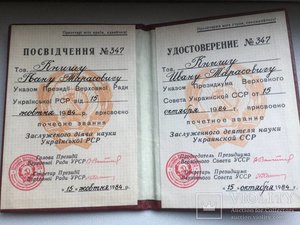 ПОСВІДЧЕННЯ №347
Тов. Книшу
Івану Тарасовичу
Указом Президії Верховної Ради
Української РСР від 15
жовтня 1984 р. присвоєно
почесне звання
Заслуженого діяча науки
Української РСР
Голова Президії
Верховної Ради УРСР
Секретар Президії
Верховної Ради УРСР
15 жовтня 1984
УДОСТОВЕРЕНИЕ №347
Тов. Кнышу
Ивану Тарасовичу
Указом Президиума Верховного
Совета Украинской ССР от 15
октября 1984 г. присвоено
почетное звание
Заслуженного деятеля науки
Украинской ССР
Председатель Президиума
Верховного Совета УССР
Секретарь Президиума
Верховного Совета УССР
15 октября 1984
VIOLITY
Auction for Collectors